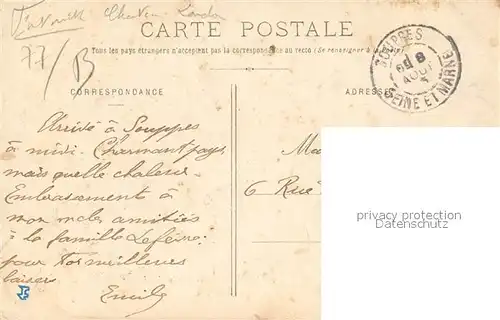 Chateau Landon
CARTE POSTALE
Tous les pays étrangers n'acceptent pas la correspondance au recto (de renseigner à la Poste)
77/B
SOUPPES
8
AOUT
SEINE ET MARNE
CORRESPONDANCE
ADRESSE
Arrivé à Souppes
à midi. Charmant pays
mais quelle chaleur.
Embrassement à
mon amitiés
à la famille Lefèvre.
pour toi meilleures
baisers
Emile
6 Rue
privacy protection
Datenschutz